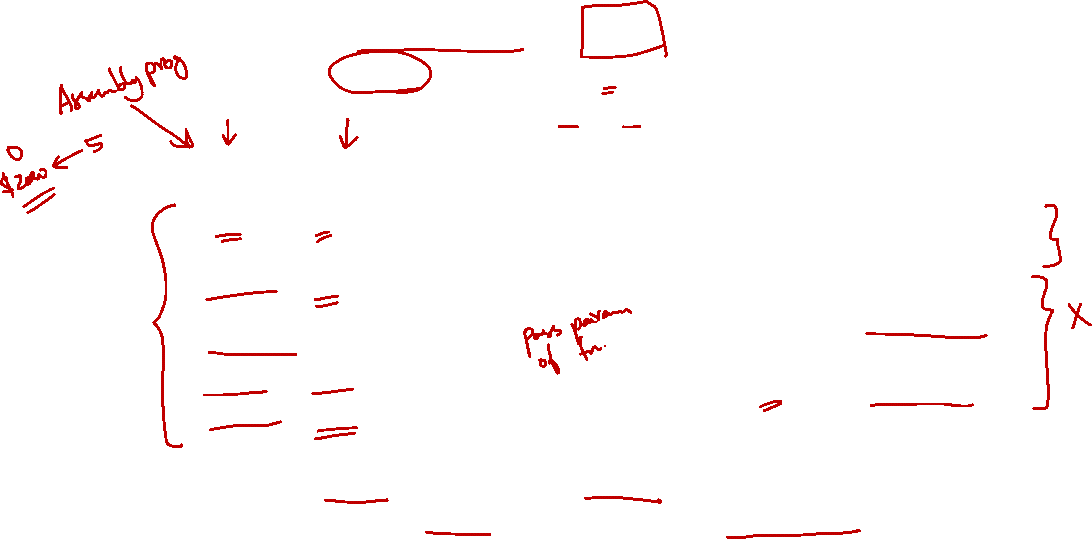 Assembly prog
0
$zero
5
pass param
of fn.
X